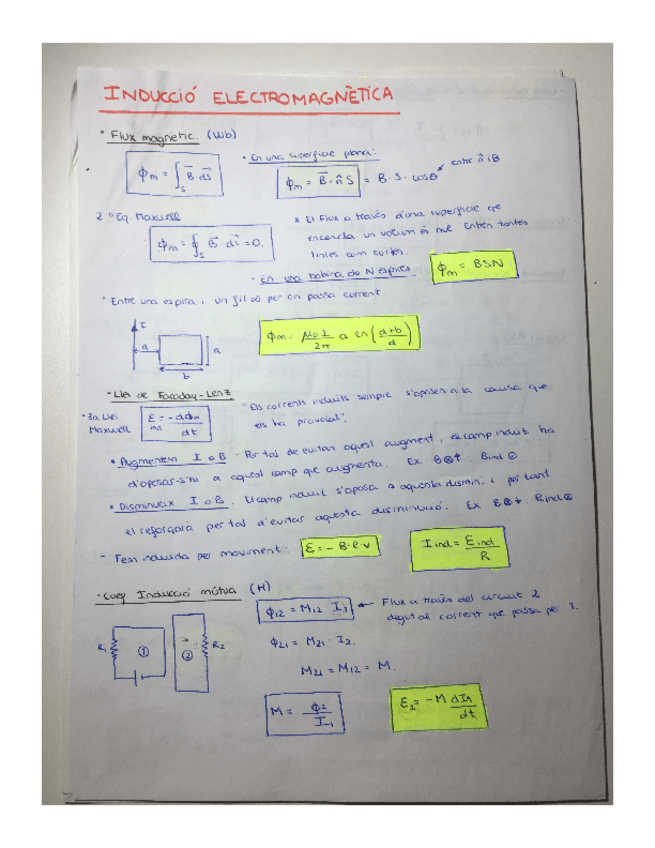 INDUCCIÓ ELECTROMAGNÈTICA
• Flux magnètic. (Wb)
ϕm = ∫s B⃗·ds⃗
• En una superfície plana:
ϕm = B⃗·n̂ S = B·S·cosθ
entre n̂ i B
2ª Eq. Maxwell
ϕm = ∮s B⃗ ds⃗ = 0.
* El Flux a través d'una superfície que
encercla un volum és nul. Entren tantes
línies com surten.
• En una bobina de N espires
ϕm = BSN
• Entre una espira i un fil ∞ per on passa corrent.
I
a
a
b
ϕm = μ0 I / 2π a ln (d+b / d)
• Llei de Faraday-Lenz
• 3a Llei
Maxwell
ε ind = -dϕm / dt
"Els corrents induïts sempre s'oposen a la causa que
els ha provocat".
• Augmentem I o B. Per tal d'evitar aquest augment, el camp induit ha
d'oposar-s'hi a aquest camp que augmenta. Ex. B⊗↑ : Bind ⊙
• Disminueix I o B. El camp induit s'oposa a aquesta disminu. i per tant
el reforçarà per tal d'evitar aquesta disminució. Ex B⊗↓ : Bind ⊗
- Fem induïda per moviment: ε = - B·l·v
I ind = εind / R
• Coef Inducció mútua (H)
R1
①
②
R2
ϕ12 = M12 · I1
← Flux a través del circuit 2
degut al corrent que passa per 1.
ϕ21 = M21 · I2.
M21 = M12 = M.
M = ϕ2 / I1
ε2 = -M dI1 / dt